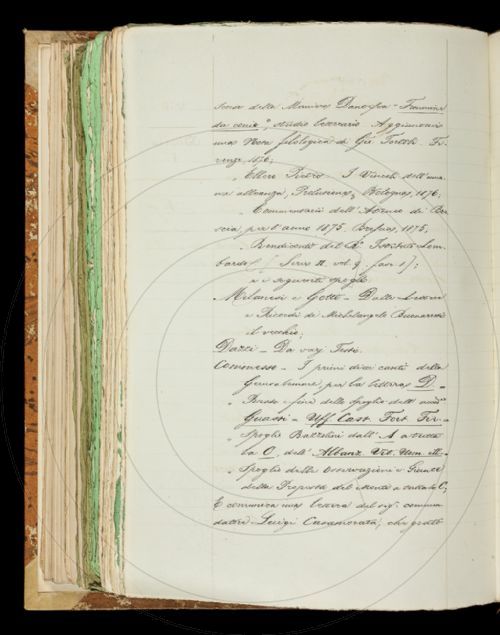 della Danesha - Fanciulle
da", studio letterario. Aggiuntovi
una Nota filologica di Gio. Tortoli. Fi-
renze 1876;
" Ellero Pietro - I Vincoli dell'uma-
na alleanza, Prelusione, Bologna, 1876;
" Commentarii dell'Ateneo di Bre-
scia, per l'anno 1875. Brescia, 1875,
" Rendiconti del R.o Istituto Lom-
bardo [Serie II. vol. 9 fasc. 1];
e i seguenti spogli
Milanesi e Gotti - Dalle Lettere
e Ricordi di Michelangelo Buonarroti
il vecchio;
Dazzi - Da varj Testi.
Commesso - I primi dieci canti della
Gerusalemme, per la lettera D.
" fine dello spoglio dell'
Guasti - Uff. Cast. Fort. Fer.
" Spoglio Bazzolini dall' A a tutta
la O, dell' Albanz. Vit. Uom. Ill.
" Spoglio delle Osservazioni e Giunte
della Proposta del Monti a tutto la C;
E comunica una lettera del sig. commen-
datore Luigi Casamorata, che